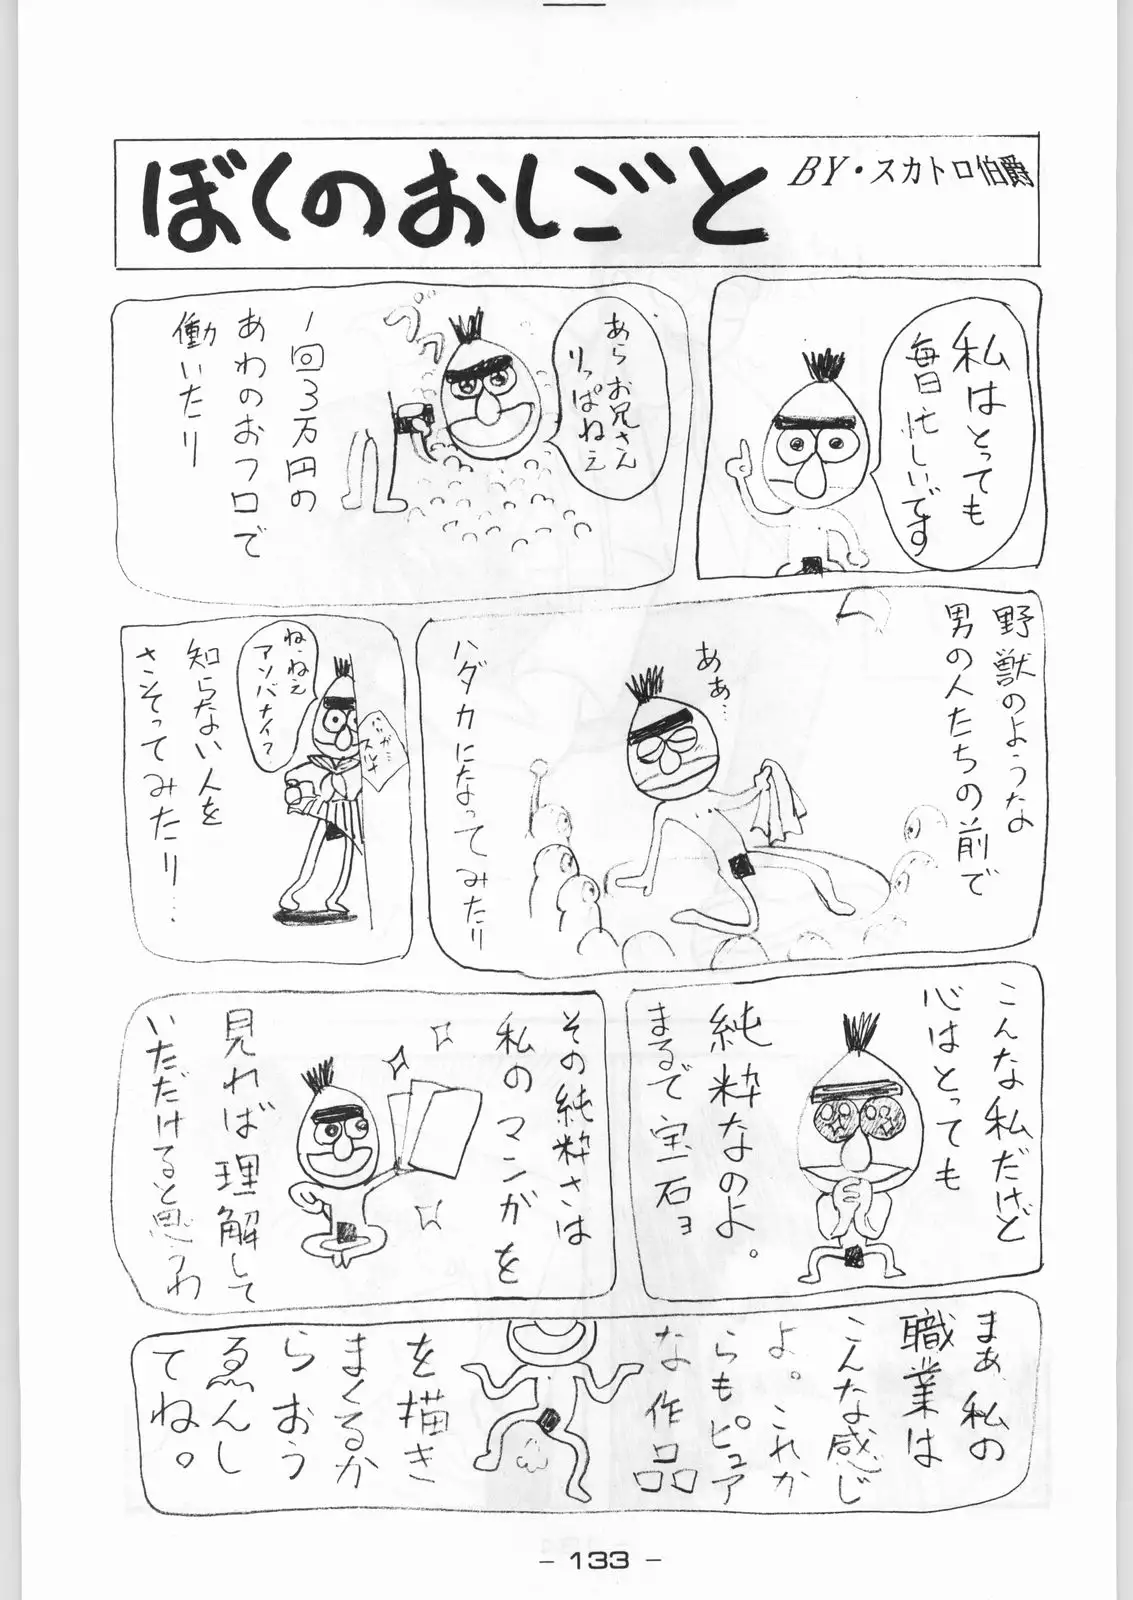 ぼくのおしごと
BY・スカトロ伯爵
私はとっても
毎日忙しいです
あらお兄さん
りっぱねぇ
ブクブク
1回3万円の
あわのおフロで
働いたり
野獣のような
男の人たちの前で
あぁ…
ハダカになってみたり
ねぇねぇ
アソバナイ?
知らない人を
さそってみたり…
こんな私だけど
心はとっても
純粋なのよ。
まるで宝石ョ
その純粋さは
私のマンガを
見れば理解して
いただけると思うわ
まぁ、私の
職業は
こんな感じ
よ。これか
らもピュア
な作品
を描き
まくるか
らおう
ゑんし
てね。
- 133 -